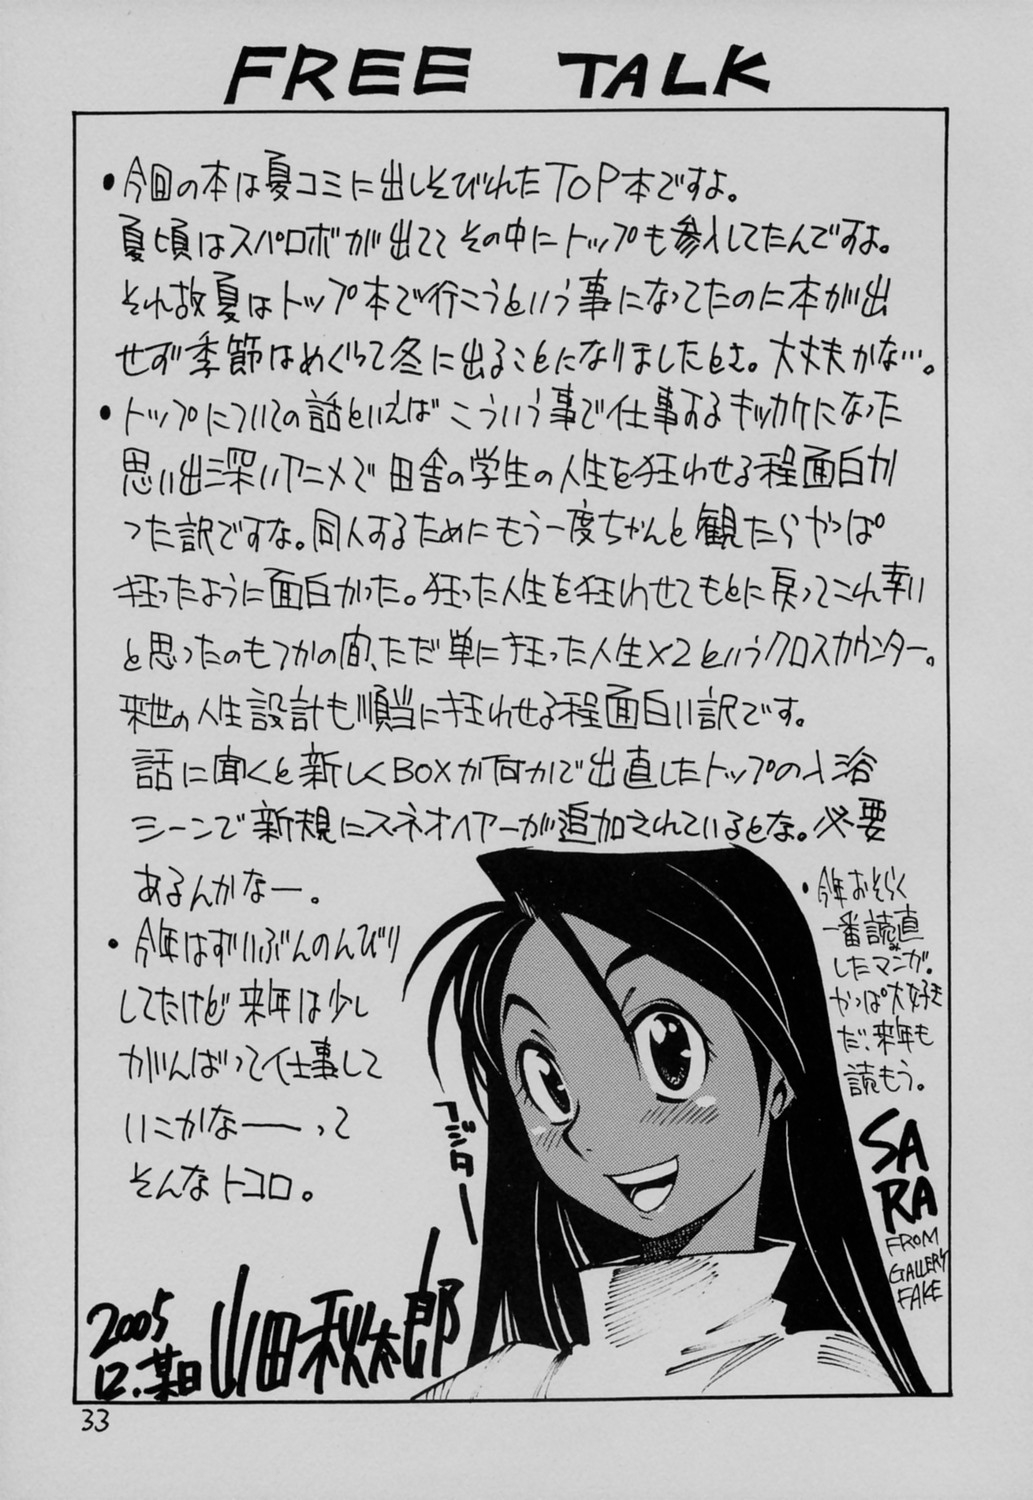 FREE TALK
・今回の本は夏コミに出しそびれたTOP本ですよ。
夏頃はスパロボが出ててその中にトップも参入してたんですよ。
それ故夏はトップ本で行こうという事になってたのに本が出
せず季節はめぐって冬に出ることになりましたとさ。大丈夫かな…。
・トップについての話といえばこういう事で仕事するキッカケになった
思い出深いアニメで田舎の学生の人生を狂わせる程面白か
った訳ですな。同人するためにもう一度ちゃんと観たらやっぱ
狂ったように面白かった。狂った人生を狂わせてもとに戻ってこれ幸い
と思ったのもつかの間、ただ単に狂った人生×2というクロスカウンター。
来世の人生設計も順当に狂わせる程面白い訳です。
話に聞くと新しくBOXか何かで出直したトップの入浴
シーンで新規にスネオヘアーが追加されているとな。必要
あるんかなー。
・今年はずいぶんのんびり
してたけど来年は少し
がんばって仕事して
いこかなーーって
そんなトコロ。
・今年おそらく
一番読み直
したマンガ。
やっぱ大好き
だ、来年も
読もう。
SA
RA
FROM
GALLERY
FAKE
アジター
2005
12.某日
山田秋太郎
33